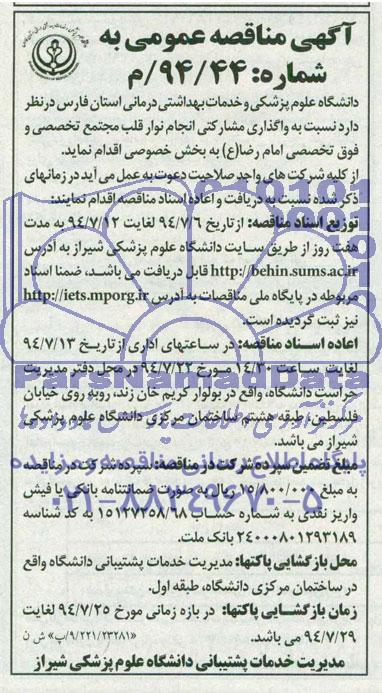 آگهی مناقصه عمومی به
شماره: ۹۴/۴۴/م
دانشگاه علوم پزشکی و خدمات بهداشتی درمانی استان فارس در نظر
دارد نسبت به واگذاری مشارکتی انجام نوار قلب مجتمع تخصصی و
فوق تخصصی امام رضا(ع) به بخش خصوصی اقدام نماید.
از کلیه شرکت های واجد صلاحیت دعوت به عمل می آید در زمانهای
ذکر شده نسبت به دریافت و اعاده اسناد مناقصه اقدام نمایند:
توزیع اسناد مناقصه: از تاریخ ۹۴/۷/۶ لغایت ۹۴/۷/۱۲ به مدت
هفت روز از طریق سایت دانشگاه علوم پزشکی شیراز به آدرس
http://behin.sums.ac.ir قابل دریافت می باشد، ضمنا اسناد
مربوطه در پایگاه ملی مناقصات به آدرس http://iets.mporg.ir
نیز ثبت گردیده است.
اعاده اسناد مناقصه: در ساعتهای اداری از تاریخ ۹۴/۷/۱۳
لغایت ساعت ۱۴/۳۰ مورخ ۹۴/۷/۲۲ در محل دفتر مدیریت
ParsNamadData
حراست دانشگاه، واقع در بولوار کریم خان زند، روبه روی خیابان
فلسطین، طبقه هشتم ساختمان مرکزی دانشگاه علوم پزشکی
شیراز می باشد.
پایگاه اطلاع رسانی مناقصه و مزایده
مبلغ تضمین سپرده شرکت در مناقصه: سپرده شرکت در مناقصه
به مبلغ ۱۵/۸۰۰/۰۰۰ ریال به صورت ضمانتنامه بانکی یا فیش
۰۲۱-۸۸۳۴۹۶۷۰-۵
واریز نقدی به شماره حساب ۱۵۱۲۷۲۵۸/۶۸ به کد شناسه
۲۴۰۰۰۸۰۱۲۹۳۱۸۹ بانک ملت.
محل بازگشایی پاکتها: مدیریت خدمات پشتیبانی دانشگاه واقع
در ساختمان مرکزی دانشگاه، طبقه اول.
زمان بازگشایی پاکتها: در بازه زمانی مورخ ۹۴/۷/۲۵ لغایت
۹۴/۷/۲۹ می باشد. «۹/۲۲۱/۲۳۲۸۱/پ» ش ن
مدیریت خدمات پشتیبانی دانشگاه علوم پزشکی شیراز